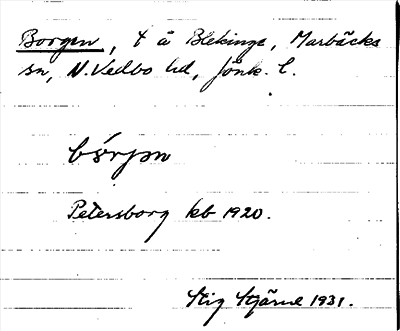 Borgen, t å Blekinge, Marbäcks
sn, N. Vedbo hd, Jönk. l.
Petersborg kb 1920.
Stig Stjärne 1931.